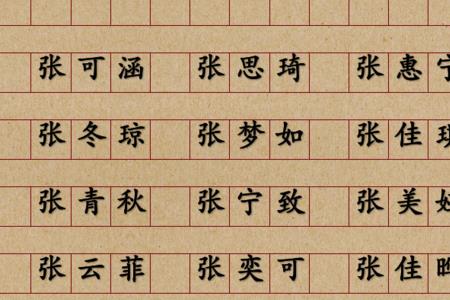 张可涵 张思琦 张惠宁
张冬琼 张梦如 张佳
张青秋 张宁致 张美
张云菲 张奕可 张佳